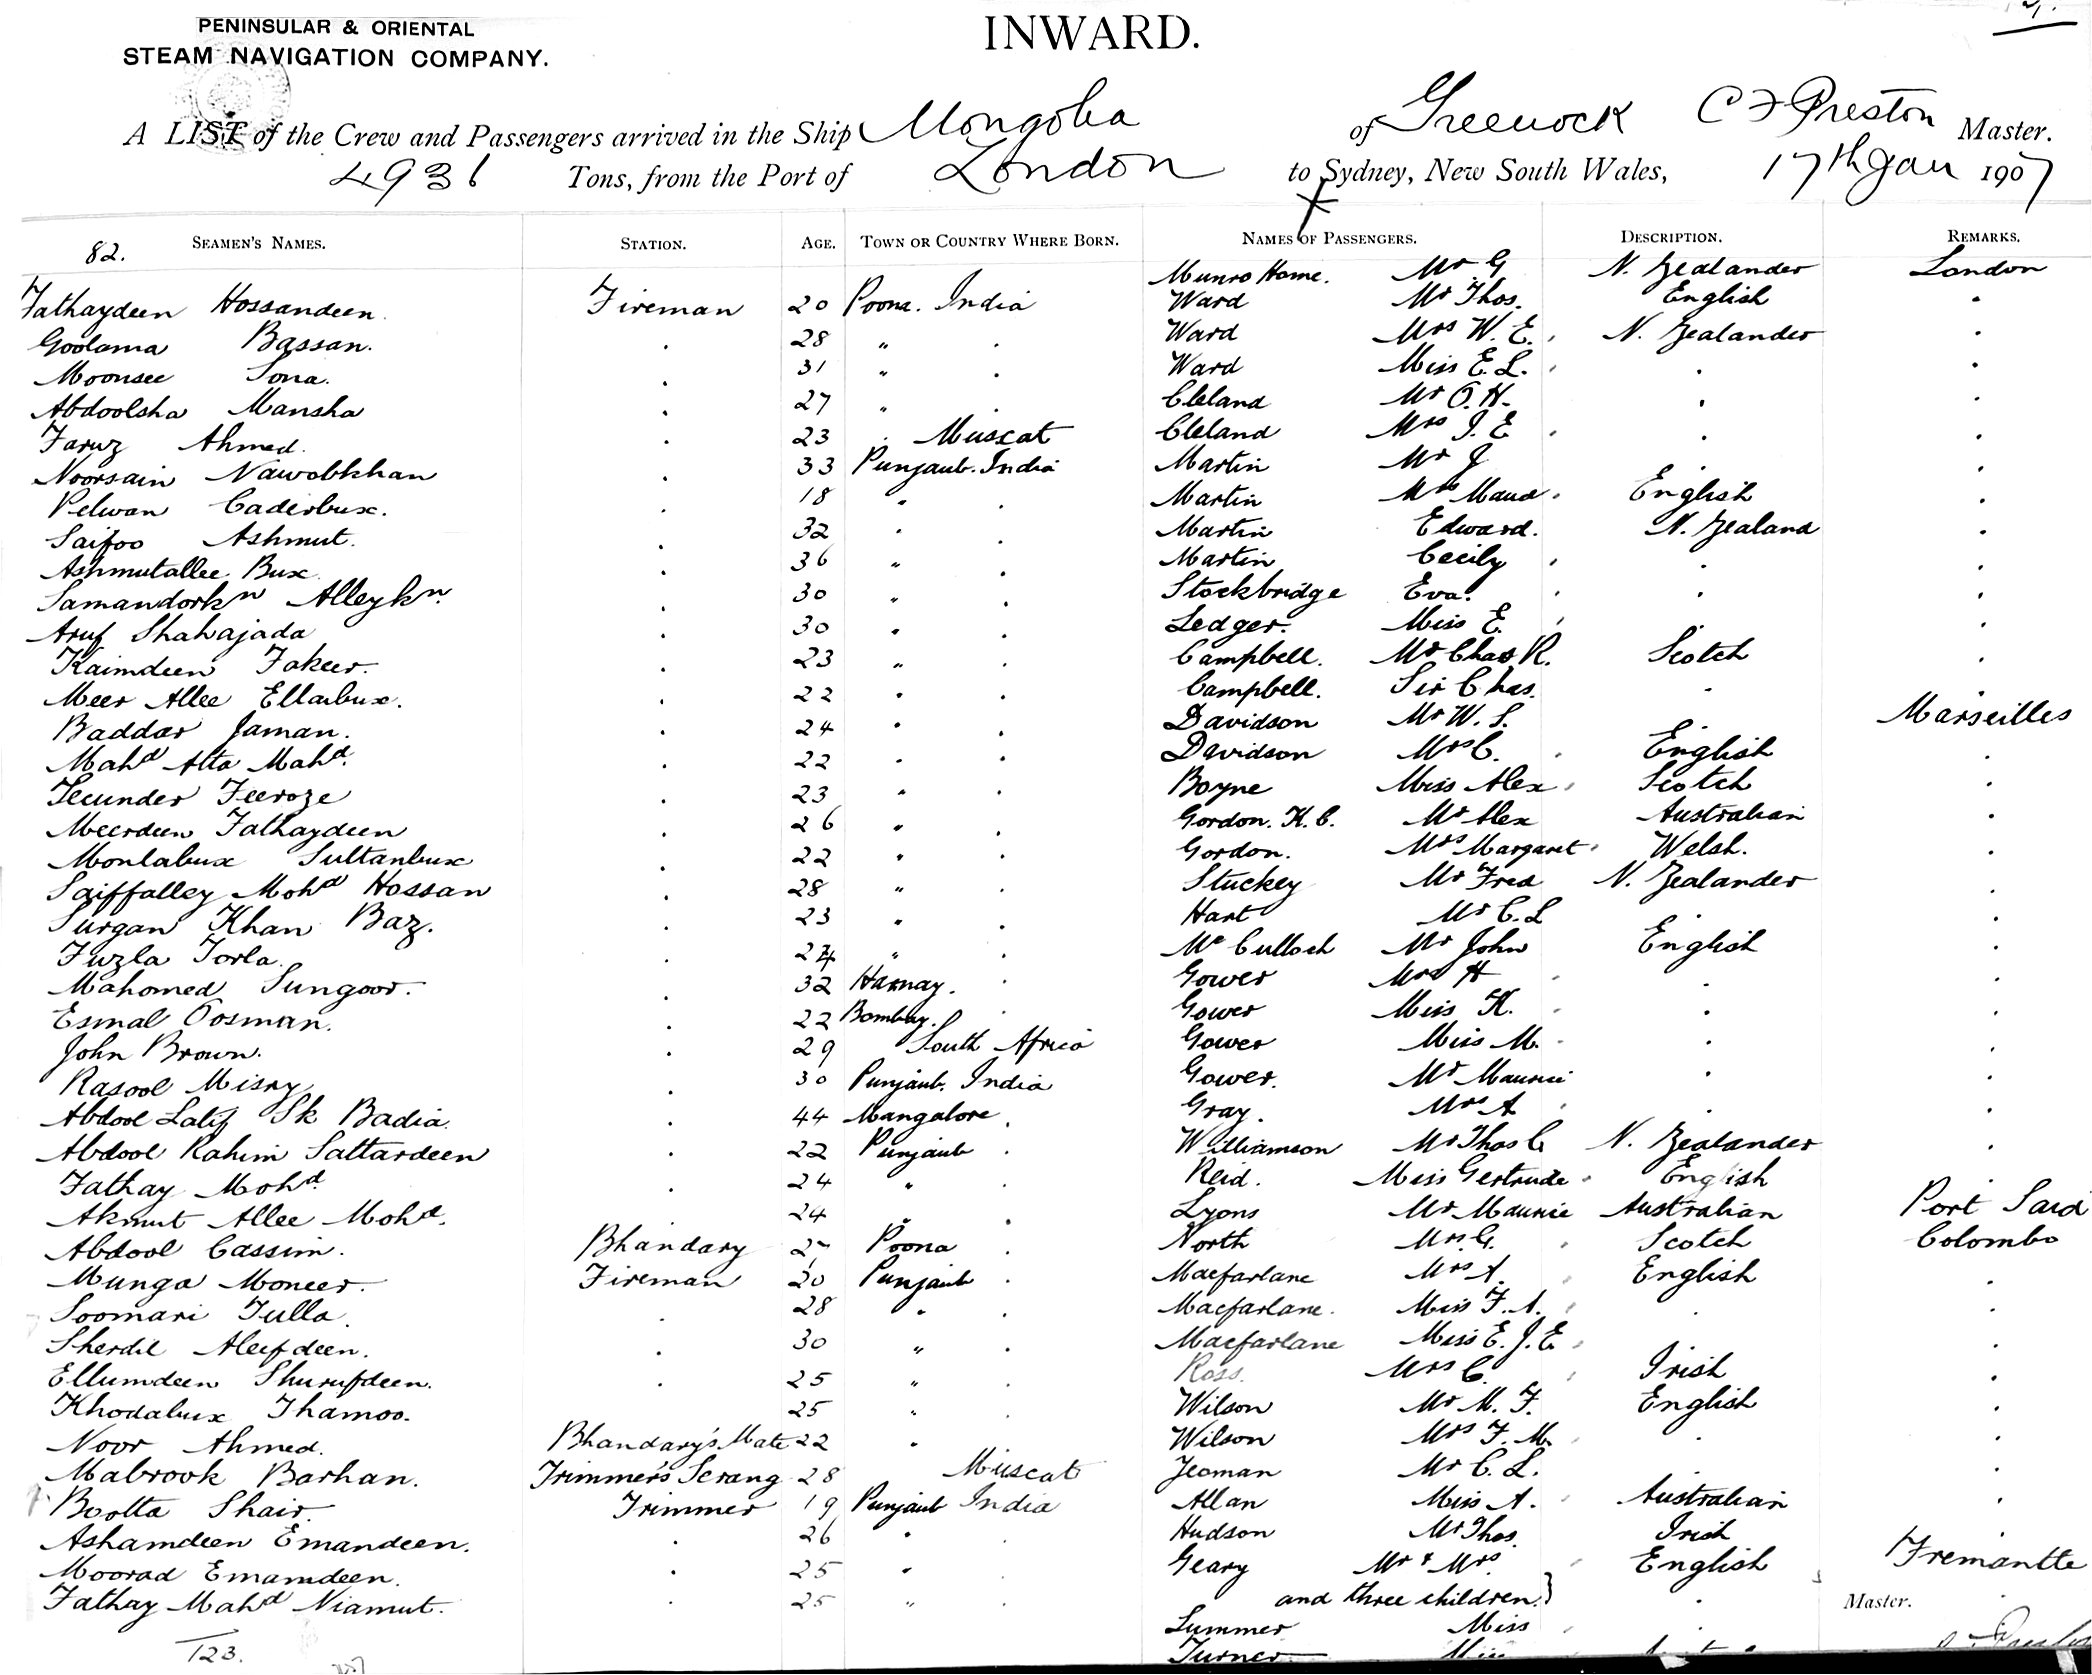 PENINSULAR & ORIENTAL
STEAM NAVIGATION COMPANY.
INWARD.
A LIST of the Crew and Passengers arrived in the Ship Mongolia of Greenock C F Preston Master.
4936 Tons, from the Port of London to Sydney, New South Wales, 17th Jan 1907
82. SEAMEN'S NAMES. STATION. AGE. TOWN OR COUNTRY WHERE BORN. NAMES OF PASSENGERS. DESCRIPTION. REMARKS.
Munro Home. Mr G N. Zealander London
Fathaydeen Hossandeen. Fireman 20 Poona. India Ward Mr Thos. English "
Goolama Bassan. " 28 " " Ward Mrs W. E. " N. Zealander "
Moonsee Sona. " 31 " " Ward Miss E. L. " " "
Abdoolsha Mansha " 27 " " Cleland Mr O. H. " "
Faruz Ahmed. " 23 " Muscat Cleland Mrs J. E " " "
Noorsain Nawobkhan " 33 Punjaub. India Martin Mr J " "
Pelwan Caderbux. " 18 " " Martin Mrs Maud " English "
Saifoo Ashmut. " 32 " " Martin Edward. N. Zealand "
Ashmutallee Bux. " 36 " " Martin Cecily " " "
Samandorkn Alleykn. " 30 " " Stockbridge Eva. " " "
Aruf Shahajada " 30 " " Ledger. Miss E. " " "
Kaimdeen Fakeer. " 23 " " Campbell. Mr Chas R. Scotch "
Meer Allee Ellaibux. " 22 " " Campbell. Sir Chas. " "
Baddar Jaman. " 24 " " Davidson Mr W. S. " Marseilles
Mahd Atta Mahd. " 22 " " Davidson Mrs C. " English "
Secunder Feeroze " 23 " " Boyne Miss Alex " Scotch "
Meerdeen Fathaydeen " 26 " " Gordon. K. C. Mr Alex Australian "
Monlabux Sultanbux " 22 " " Gordon. Mrs Margaret " Welsh. "
Saiffalley Mohd Hossan " 28 " " Stuckey Mr Fred N. Zealander "
Surgan Khan Baz. " 23 " " Hart Mr C. L "
Fuzla Torla. " 24 " " McCulloch Mr John English "
Mahomed Sungoor. " 32 Harnay. " Gower Mrs H " " "
Esmal Oosman. " 22 Bombay. " Gower Miss K. " " "
John Brown. " 29 South Africa Gower Miss M. " " "
Rasool Misry " 30 Punjaub. India Gower. Mr Maurice " "
Abdool Latif Sk Badia. " 44 Mangalore " Gray. Mrs A " " "
Abdool Rahim Sattardeen " 22 Punjaub " Williamson Mr Thos C N. Zealander "
Fathay Mohd. " 24 " " Reid. Miss Gertrude " English "
Akmut Allee Mohd. " 24 " " Lyons Mr Maurice Australian Port Said
Abdool Cassim. Bhandary 27 Poona " North Mrs. G. " Scotch Colombo
Munga Moneer. Fireman 20 Punjaub " Macfarlane Mrs A. " English "
Soomari Tulla. " 28 " " Macfarlane. Miss F. A. " " "
Sherdil Aleefdeen. " 30 " " Macfarlane Miss E. J. E. " "
Ellumdeen Shurufdeen. " 25 " " Ross. Mrs C. " Irish "
Khodabux Thamoo. 25 " " Wilson Mr M. F. English "
Noor Ahmed. Bhandary's Mate 22 " " Wilson Mrs F. M. " " "
Mabrook Barhan. Trimmer's Serang 28 Muscat Yeoman Mr C. L. " "
Bootta Shair. Trimmer 19 Punjaub India Allan Miss A. " Australian "
Ashamdeen Emandeen. " 26 " " Hudson Mr Thos. Irish "
Moorad Emamdeen. " 25 " " Geary Mr & Mrs. " English Fremantle
Fathay Mahd Niamut. " 25 " " and three children. } " "
Master.
Summer Miss
123. Turner